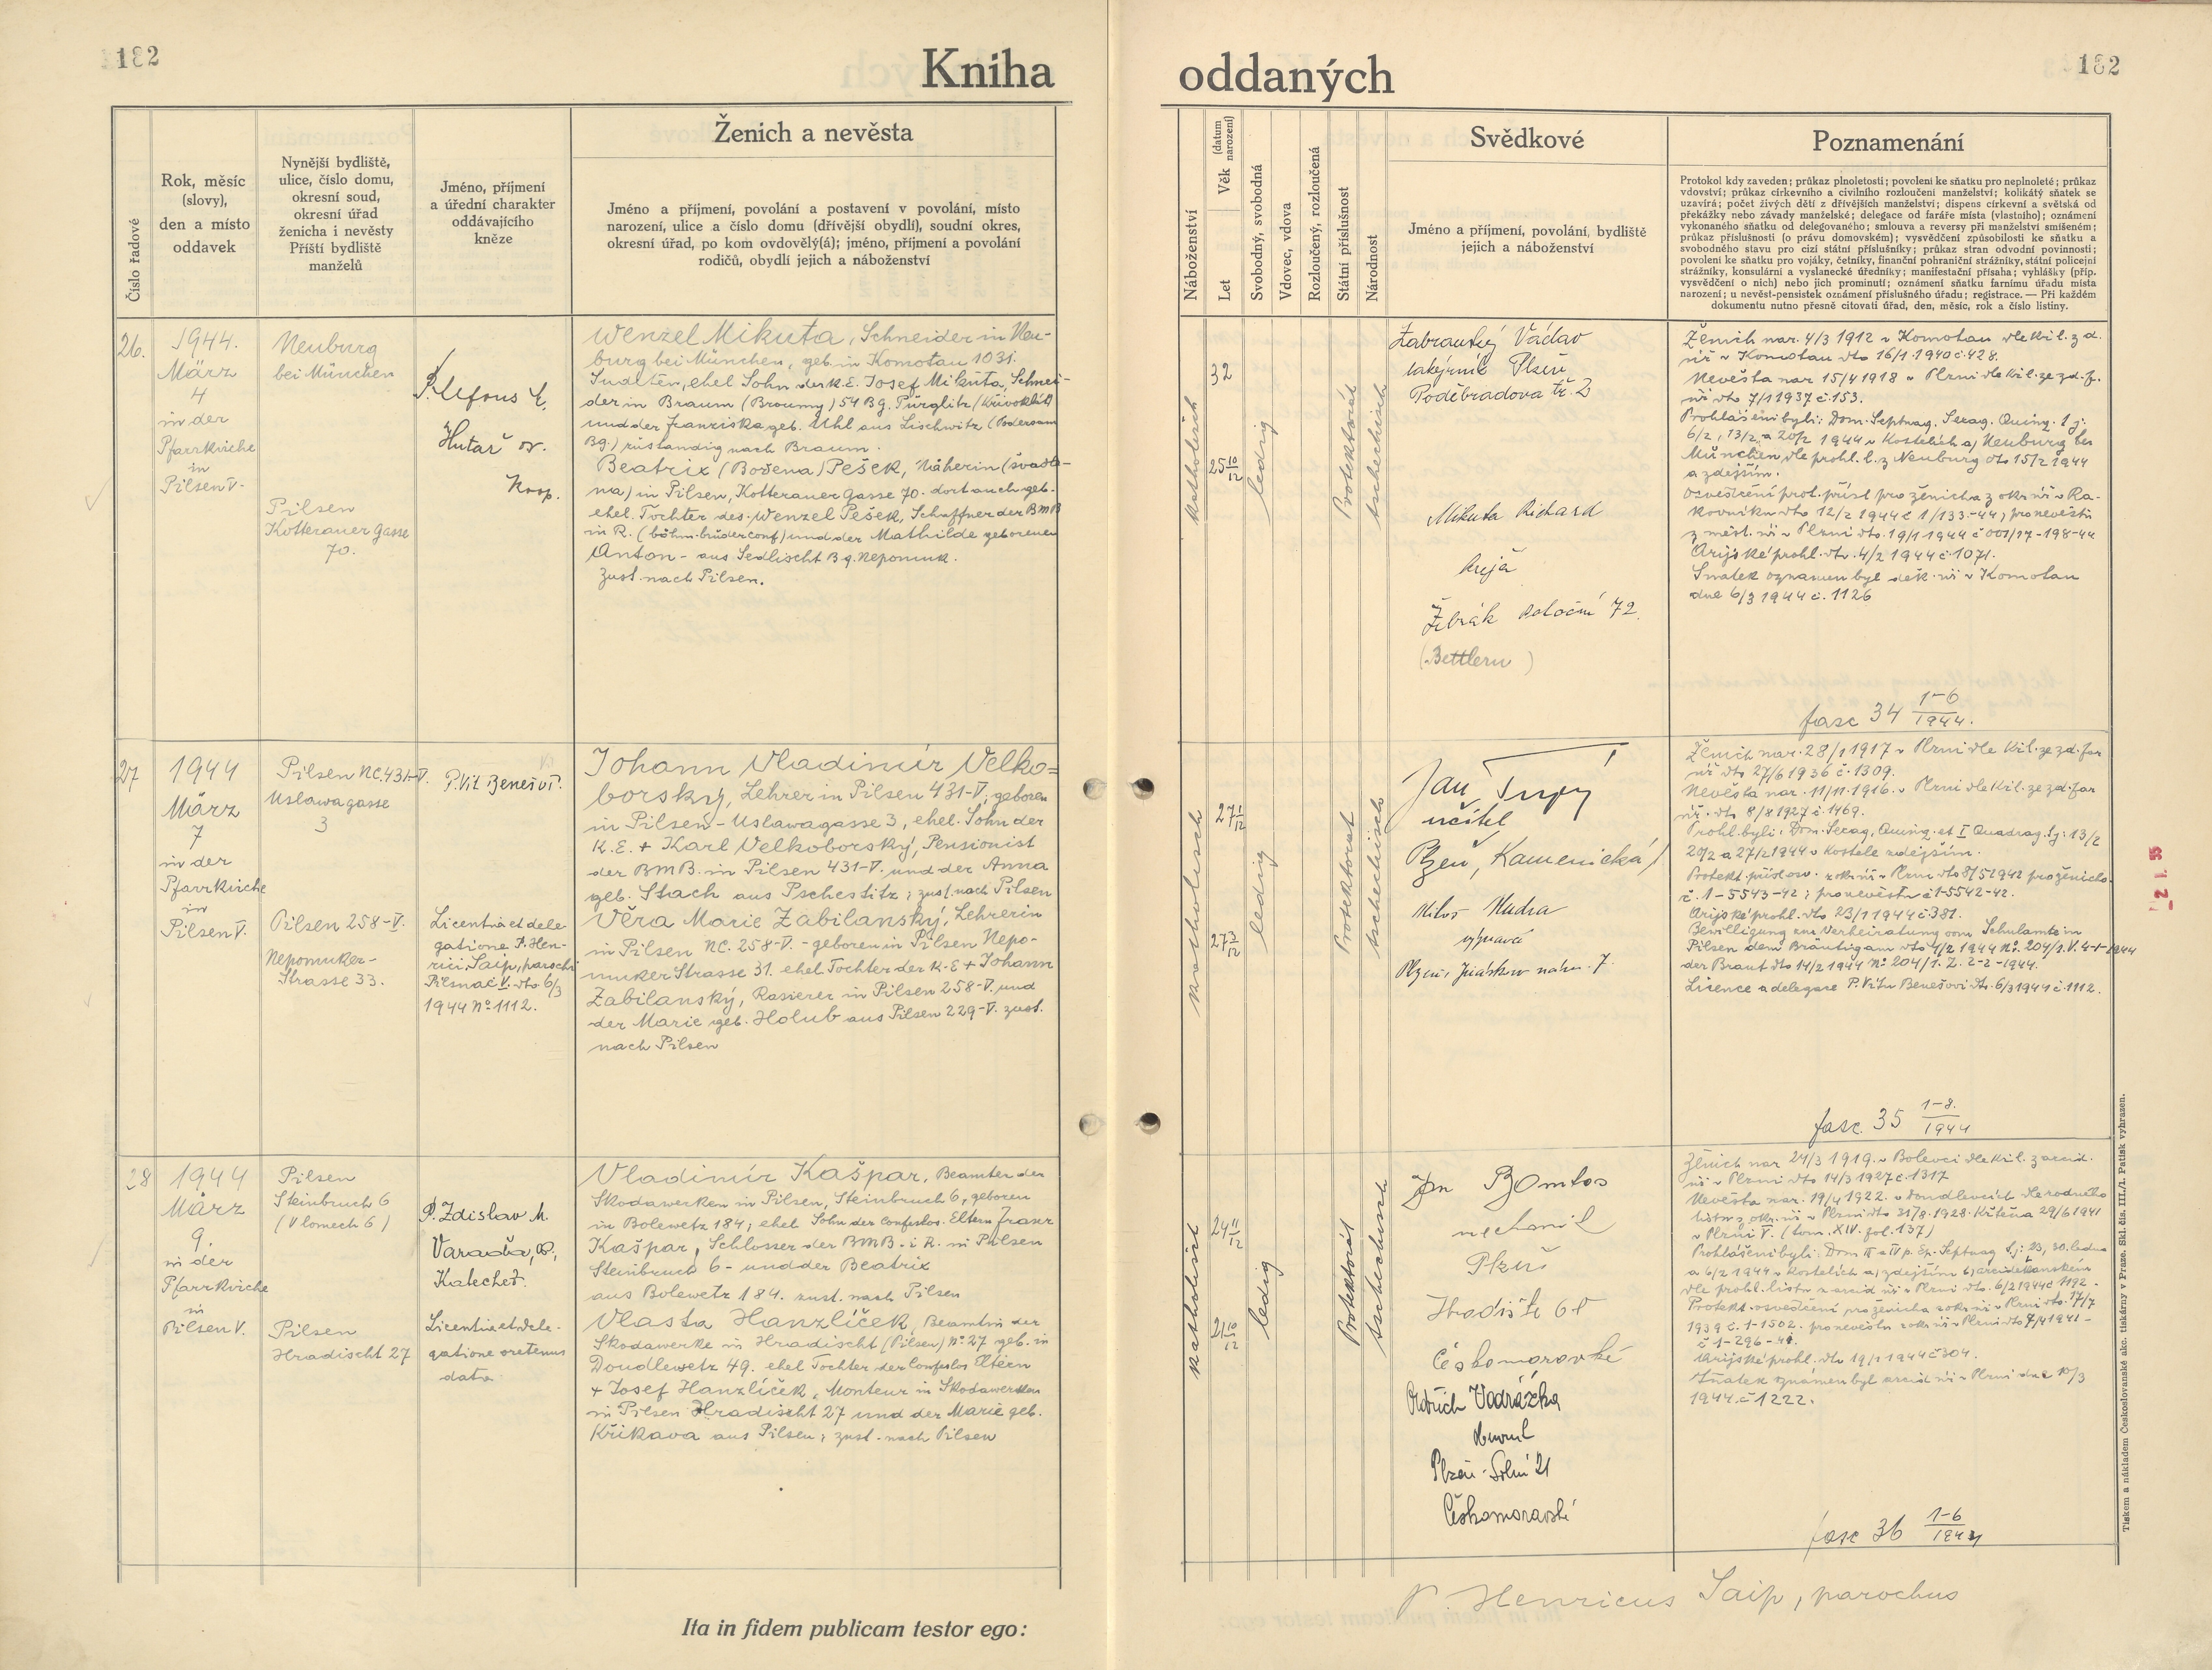 182
Kniha
Číslo řadové
Rok, měsíc
(slovy),
den a místo
oddavek
Nynější bydliště,
ulice, číslo domu,
okresní soud,
okresní úřad
ženicha i nevěsty
Příští bydliště
manželů
Jméno, příjmení
a úřední charakter
oddávajícího
kněze
Ženich a nevěsta
Jméno a příjmení, povolání a postavení v povolání, místo
narození, ulice a číslo domu (dřívější obydlí), soudní okres,
okresní úřad, po kom ovdovělý(á); jméno, příjmení a povolání
rodičů, obydlí jejich a náboženství
26.
1944.
März
4
in der
Pfarrkirche
in
Pilsen V.
Neuburg
bei München
Pilsen
Kotterauer Gasse
70.
Hutař
Wenzel Mikuta, Schneider in Neu-
burg bei München, geb. in Komotau 1031.
Sudeten, ehel. Sohn der k.E. Josef Mikuta, Schnei-
der in Braum (Broumy) 54 Bg. Pürglitz (Křivoklát)
und der Franziska geb. Uhl aus Lischwitz (Podersam
Bg.) zuständig nach Braum.
Beatrix (Božena) Pešek, Näherin (švadle-
na) in Pilsen, Kotterauer Gasse 70. dort auch geb.
ehel. Tochter des Wenzel Pešek, Schaffner der BMB
in R. (böhm. brüderconf) und der Mathilde geborenen
Anton - aus Sedlischt Bg. Nepomuk.
Zust. nach Pilsen.
27
1944
März
7
in der
Pfarrkirche
in
Pilsen V.
Pilsen NC. 431-V.
Uslawagasse
3
Pilsen 258-V.
Nepomuker-
Strasse 33.
P. Vít Beneš
Licentia et dele
gatione P. Hen-
rici Šaip, parochi
Pilsnae V. dto 6/3
1944 No 1112.
Johann Vladimír Velko=
borský, Lehrer in Pilsen 431-V; geboren
in Pilsen - Uslawagasse 3, ehel. Sohn der
K.E. + Karl Velkoborský, Pensionist
der BMB. in Pilsen 431-V. und der Anna
geb. Stach aus Pschestitz; zust. nach Pilsen
Věra Marie Zabilanský, Lehrerin
in Pilsen NC. 258-V. - geboren in Pilsen Nepo-
muker Strasse 31. ehel Tochter der K.E + Johann
Zabilanský, Rasierer in Pilsen 258-V. und
der Marie geb. Holub aus Pilsen 229-V. zust.
nach Pilsen
28
1944
März
9.
in der
Pfarrkirche
in
Pilsen V.
Pilsen
Steinbruch 6
(V lomech 6)
Pilsen
Hradischt 27
P. Zdislav M.
Katechet.
Licentia et dele-
gatione oretenus
data
Vladimír Kašpar, Beamter der
Skodawerken in Pilsen, Steinbruch 6, geboren
in Bolewetz 184; ehel Sohn der confeslos. Eltern Franz
Kašpar, Schlosser der BMB. i R. in Pilsen
Steinbruch 6 - und der Beatrix
aus Bolewetz 184. zust. nach Pilsen
Vlasta Hanzlíček, Beamtin der
Skodawerke in Hradischt (Pilsen) No 27 geb. in
Doudlewetz 49. ehel Tochter der Confeslos Eltern
+ Josef Hanzlíček, Monteur in Skodawerken
in Pilsen Hradischt 27 und der Marie geb.
Křikava aus Pilsen; zust. nach Pilsen
Ita in fidem publicam testor ego:
oddaných
182
Náboženství
Věk (datum narození)
Let
Svobodný, svobodná
Vdovec, vdova
Rozloučený, rozloučená
Státní příslušnost
Národnost
Svědkové
Jméno a příjmení, povolání, bydliště
jejich a náboženství
Poznamenání
Protokol kdy zaveden; průkaz plnoletosti; povolení ke sňatku pro neplnoleté; průkaz
vdovství; průkaz církevního a civilního rozloučení manželství; kolikátý sňatek se
uzavírá; počet živých dětí z dřívějších manželství; dispens církevní a světská od
překážky nebo závady manželské; delegace od faráře místa (vlastního); oznámení
vykonaného sňatku od delegovaného; smlouva a reversy při manželství smíšeném;
průkaz příslušnosti (o právu domovském); vysvědčení způsobilosti ke sňatku a
svobodného stavu pro cizí státní příslušníky; průkaz stran odvodní povinnosti;
povolení ke sňatku pro vojáky, četníky, finanční pohraniční strážníky, státní policejní
strážníky, konsulární a vyslanecké úředníky; manifestační přísaha; vyhlášky (příp.
vysvědčení o nich) nebo jich prominutí; oznámení sňatku farnímu úřadu místa
narození; u nevěst-pensistek oznámení příslušného úřadu; registrace. — Při každém
dokumentu nutno přesně citovati úřad, den, měsíc, rok a číslo listiny.
katholisch
32
25 10/12
ledig
Protektorát
tschechisch
Václav
lakýrník Plzeň
Poděbradova tř. 2
Mikuta Richard
krejčí
Žebrák 72.
(Bettlern)
Ženich nar. 4/3 1912 v Komotau dle kř. l. z d.
úř v Komotau dto 16/1 1940 č. 428.
Nevěsta nar 15/4 1918 v Plzni dle kř. l. ze zd. f.
úř dto 7/1 1937 č. 153.
Prohlášení byli: Dom. Septuag. Sexag. Quinq. t.j.
6/2, 13/2 a 20/2 1944 v kostelích a) Neuburg bei
München, dle prohl. l. z Neuburg dto 15/2 1944
a zdejším.
Osvědčení prot. přísl pro ženicha z okr. úř v Ra-
kovníku dto 12/2 1944 č 1/133-44; pro nevěstu
z měst. úř v Plzni dto. 19/1 1944 č 001/17-198-44
Arijské prohl. dto. 4/2 1944 č. 1071.
Sňatek oznámen byl děk. úř v Komotau
dne 6/3 1944 č. 1126
fasc 34 1-6/1944.
katholisch
27 1/12
27 3/12
ledig
Protektorat
tschechisch
Jan
učitel
Plzeň, Kamenická
Miloš Mudra
Plzeň, Jiráskovo nám. 7.
Ženich nar. 28/1 1917 v Plzni dle kř. l. ze zd. far
úř dto 27/6 1936 č. 1309.
Nevěsta nar. 11/11. 1916. v Plzni dle kř. l. ze zd. far
úř. dto 8/8 1927 č. 1469.
Prohl. byli: Dom. Sexag, Quinq. et I Quadrag. t.j: 13/2
20/2 a 27/2 1944 v kostele zdejším.
Protekt. průkaz okr. úř v Plzni dto 8/5 1942 pro ženicha
č. 1-5543-42; pro nevěstu č 1-5542-42.
Arijské prohl. dto 23/1 1944 č. 381.
Bewilligung zur Verheiratung vom Schulamte in
Pilsen dem Bräutigam dto 4/2 1944 No. 204/1. V. 4-1-1944
der Braut dto 14/2 1944 No 204/1. Z. 2-2-1944.
Licence a delegace P. Vítu Benešovi dt. 6/3 1944 č. 1112.
fasc. 35 1-8./1944
katholisch
24 11/12
21 10/12
ledig
Protektorát
tschechisch
Jan
mechanik
Plzeň
Hradiště 68
Českomoravské
Oldřich Vodrážka
Plzeň - Solní 21
Českomoravské
Ženich nar 24/3 1919. v Bolevci dle kř. l. z arcid.
úř v Plzni dto 14/3 1927 č. 1317
Nevěsta nar. 19/4 1922. v Doudlevcích dle rodného
listu z okr. úř v Plzni dto 31/8. 1928. Křtěna 29/6 1941
v Plzni V. (tom. XIV. fol. 137)
Prohlášeni byli: Dom III a IV p. Ep. Septuag t.j: 23, 30. ledna
a 6/2 1944 v kostelích a) zdejším b) arciděkanském
dle prohl. listu z arcid úř v Plzni dto. 6/2 1944 č 1192.
Protekt. osvědčení pro ženicha z okr. úř v Plzni dto. 17/7
1939 č. 1-1502. pro nevěstu z okr. úř v Plzni dto 7/4 1941-
č 1-296-41.
Arijské prohl. dto 19/1 1944 č 304.
Sňatek oznámen byl arcid úř v Plzni dne 10/3
1944. č 1222.
fasc 36 1-6/1944
P. Henricus Šaip, parochus
Tiskem a nákladem Československé akc. tiskárny v Praze. Skl. čís. III./1. Patisk vyhrazen.